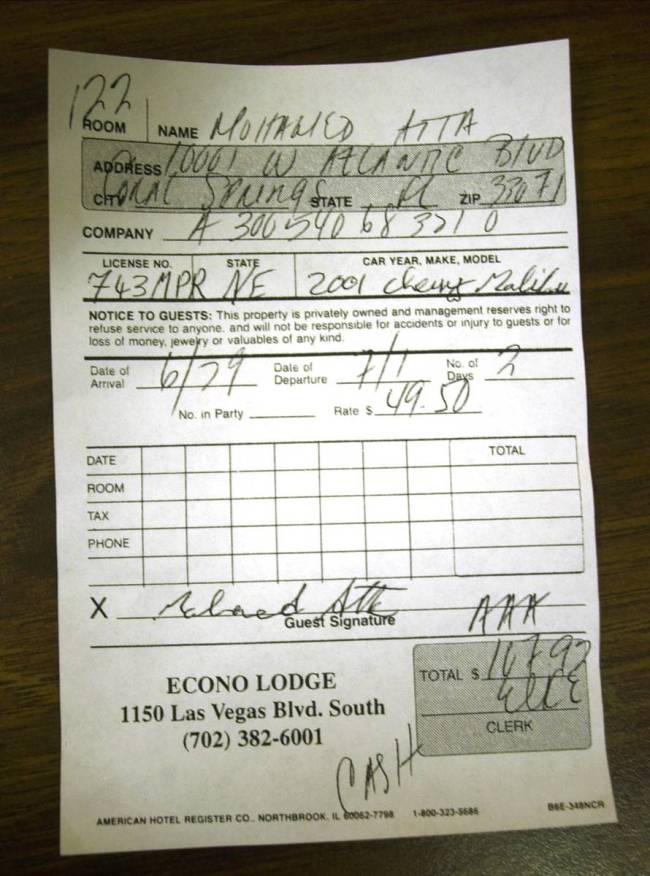 122
ROOM NAME MOHAMED ATTA
ADDRESS 10001 W ATLANTIC BLVD
CITY Coral Springs STATE FL ZIP 33071
COMPANY A 300 540 68 321 0
LICENSE NO. STATE CAR YEAR, MAKE, MODEL
743MPR NE 2001 Chevy Malibu
NOTICE TO GUESTS: This property is privately owned and management reserves right to
refuse service to anyone, and will not be responsible for accidents or injury to guests or for
loss of money, jewelry or valuables of any kind.
Date of Arrival 6/29 Date of Departure 7/1 No. of Days 2
No. in Party Rate $ 49.50
DATE TOTAL
ROOM
TAX
PHONE
X Mohamed Atta AAA
Guest Signature
ECONO LODGE TOTAL $
1150 Las Vegas Blvd. South
(702) 382-6001 CLERK
CASH
AMERICAN HOTEL REGISTER CO., NORTHBROOK, IL 60062-7798 1-800-323-5686 B6E-348NCR